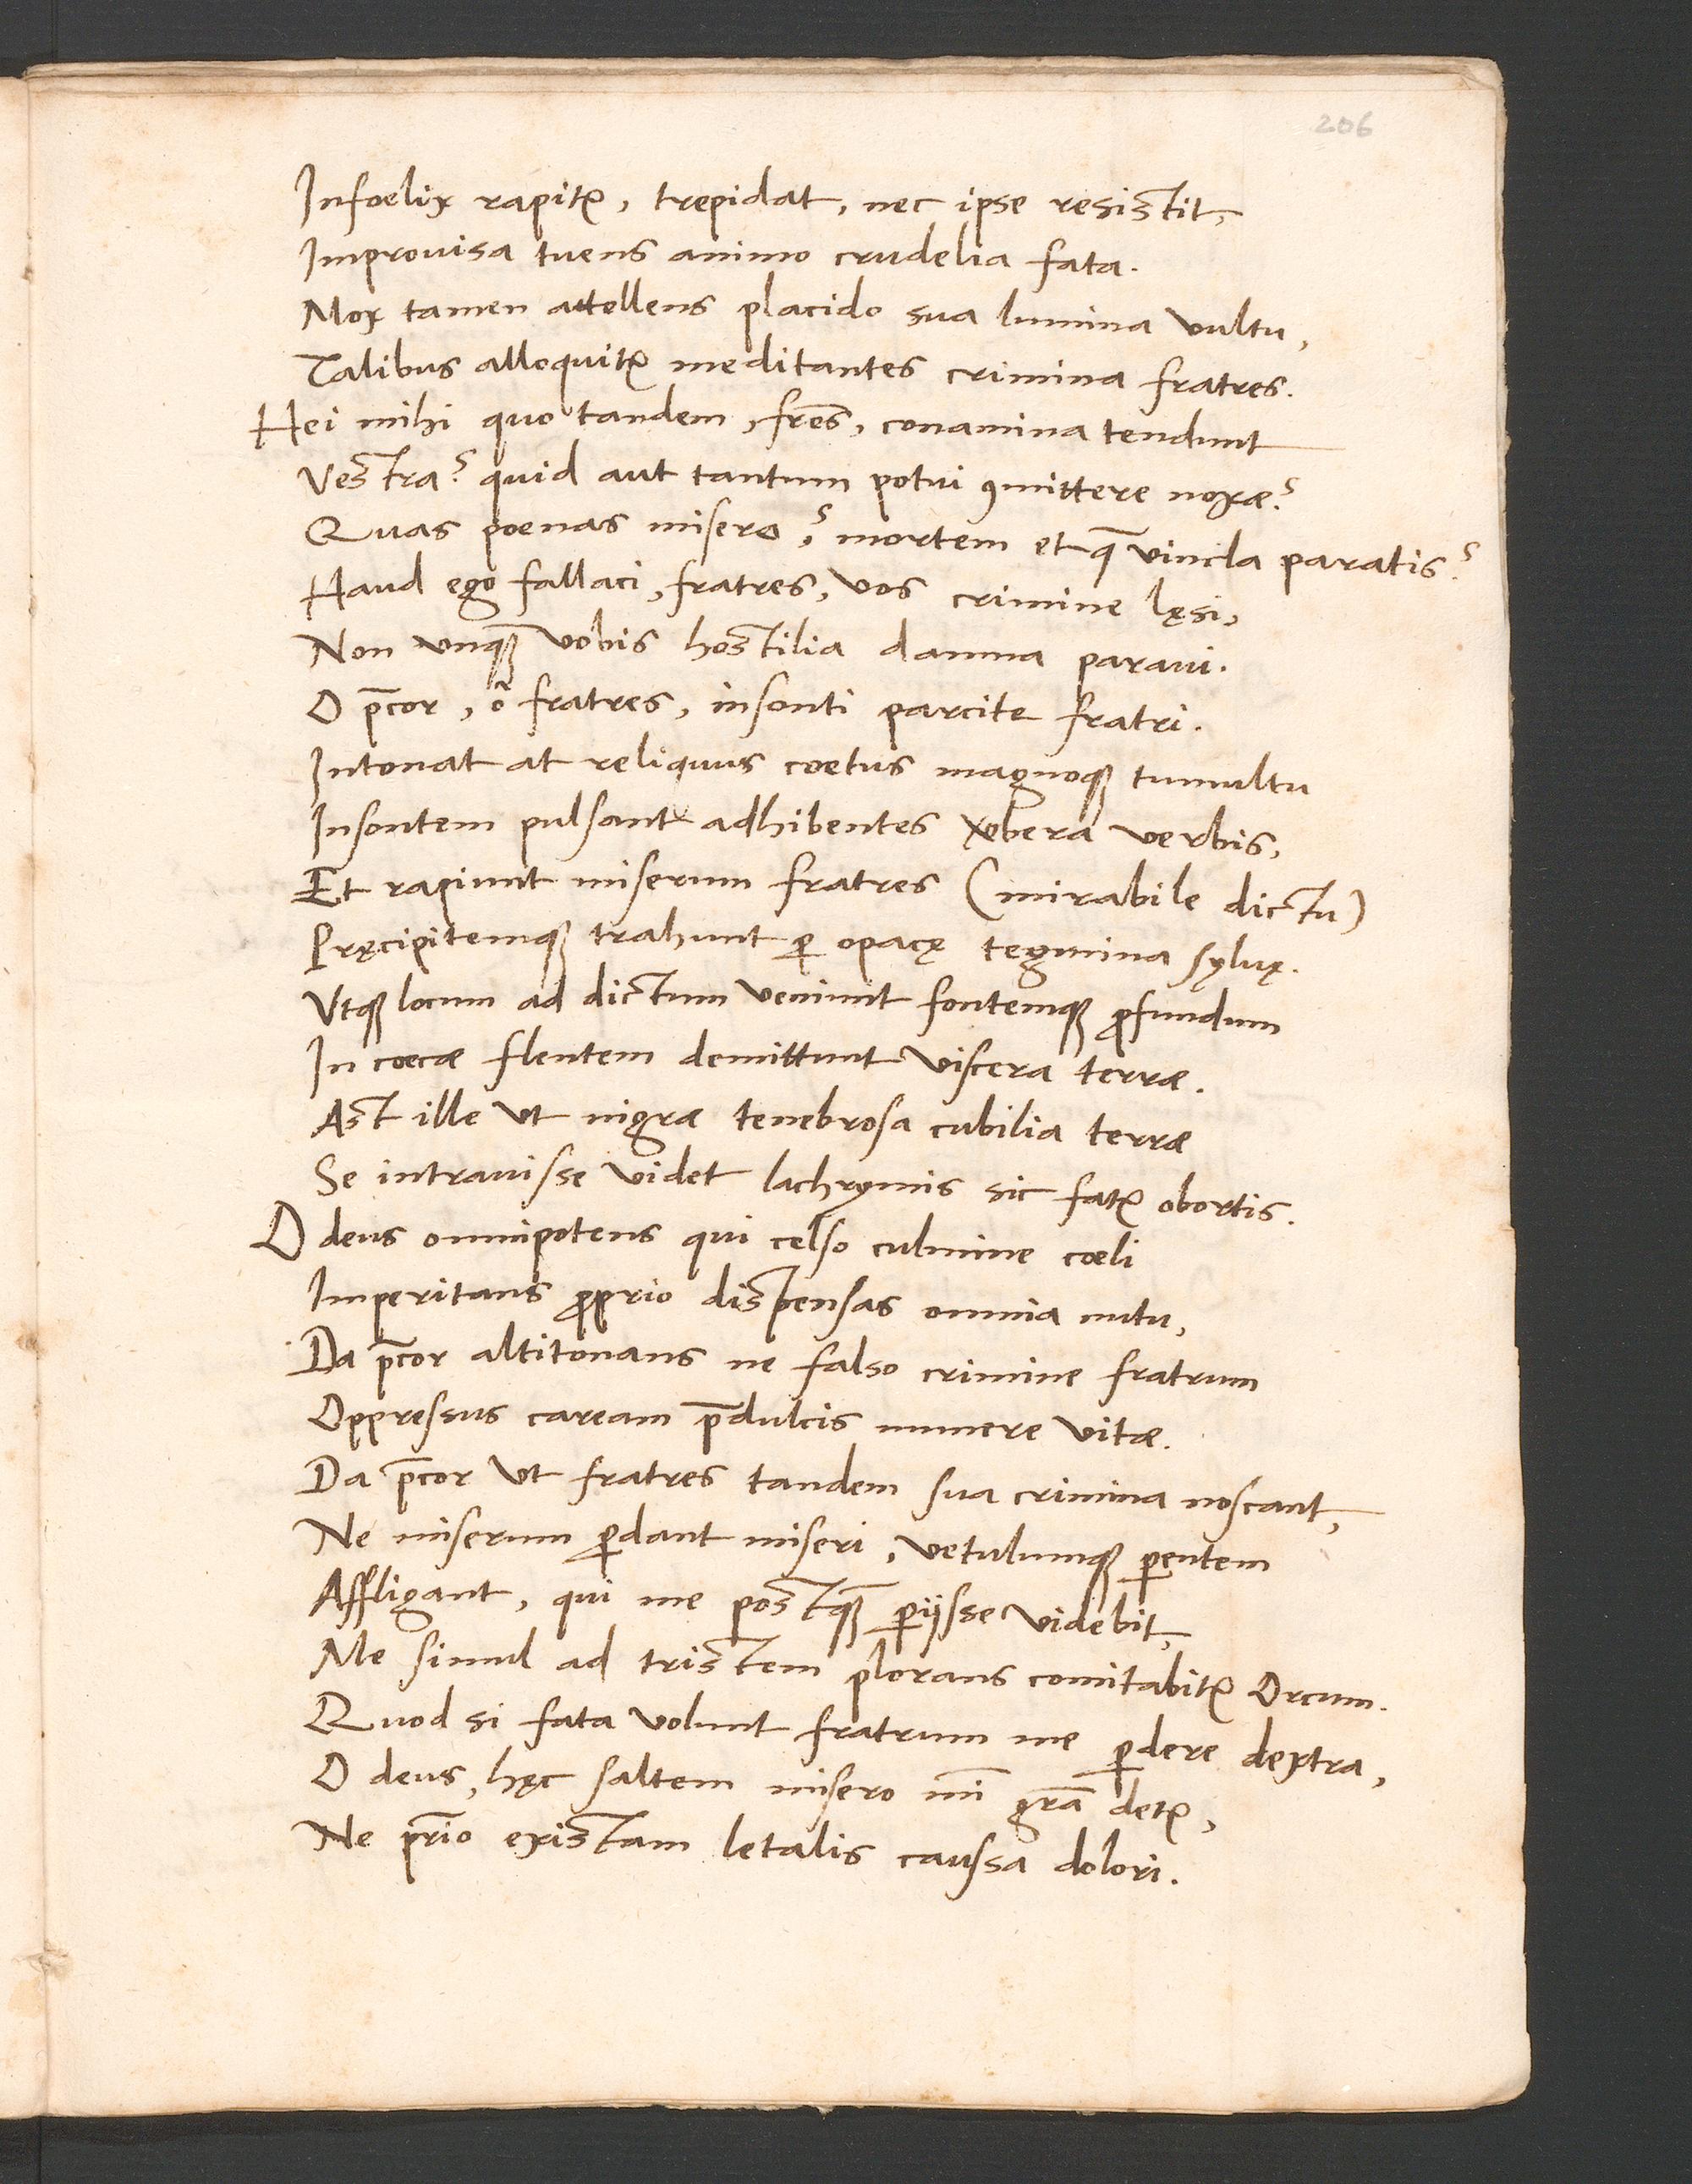 206
Infoelix rapitꝛ, trepidat, nec ipse resistit,
Improuisa tuens animo crudelia fata.
Mox tamen attollens placido sua lumina vultu,
Talibus alloquitꝛ meditantes crimina fratres.
Hei mihi quo tandem, frēs, conamina tendunt
Vestra? quid aut tantum potui ꝯmittere noxæ?
Quas poenas misero? mortem et q̄ vincla paratis?
Haud ego fallaci, fratres, vos crimine lęsi,
Non unqꝫ vobis hostilia damna paraui.
O p̄cor, ô fratres, insonti parcite fratri.
Intonat at reliquus coetus magnoqꝫ tumultu
Insontem pulsant adhibentes v̄bera verbis,
Et rapiunt miserum fratres (mirabile dictu)
Pręcipitemqꝫ trahunt ꝑ opacę tegmina syluę.
Vtqꝫ locum ad dictum veniunt fontemqꝫ ꝓfundum
In coecæ flentem demittunt viscera terræ.
Ast ille vt nigræ tenebrosa cubilia terræ
Se intrauisse videt lachrymis sic fatꝛ obortis.
O deus omnipotens qui celso culmine coeli
Imperitans ꝓprio dispensas omnia nutu,
Da p̄cor altitonans ne falso crimine fratrum
Oppressus caream p̄dulcis munere vitæ.
Da p̄cor vt fratres tandem sua crimina noscant,
Ne miserum ꝑdant miseri, vetulumqꝫ ꝑentem
Affligant, qui me postqꝫ ꝑijsse videbit,
Me simul ad tristem plorans comitabitꝛ Orcum.
Quod si fata volunt fratrum me ꝑdere dextra,
O deus, hęc saltem misero mī gr̄a detꝛ,
Ne pr̄io existam letalis caussa dolori.